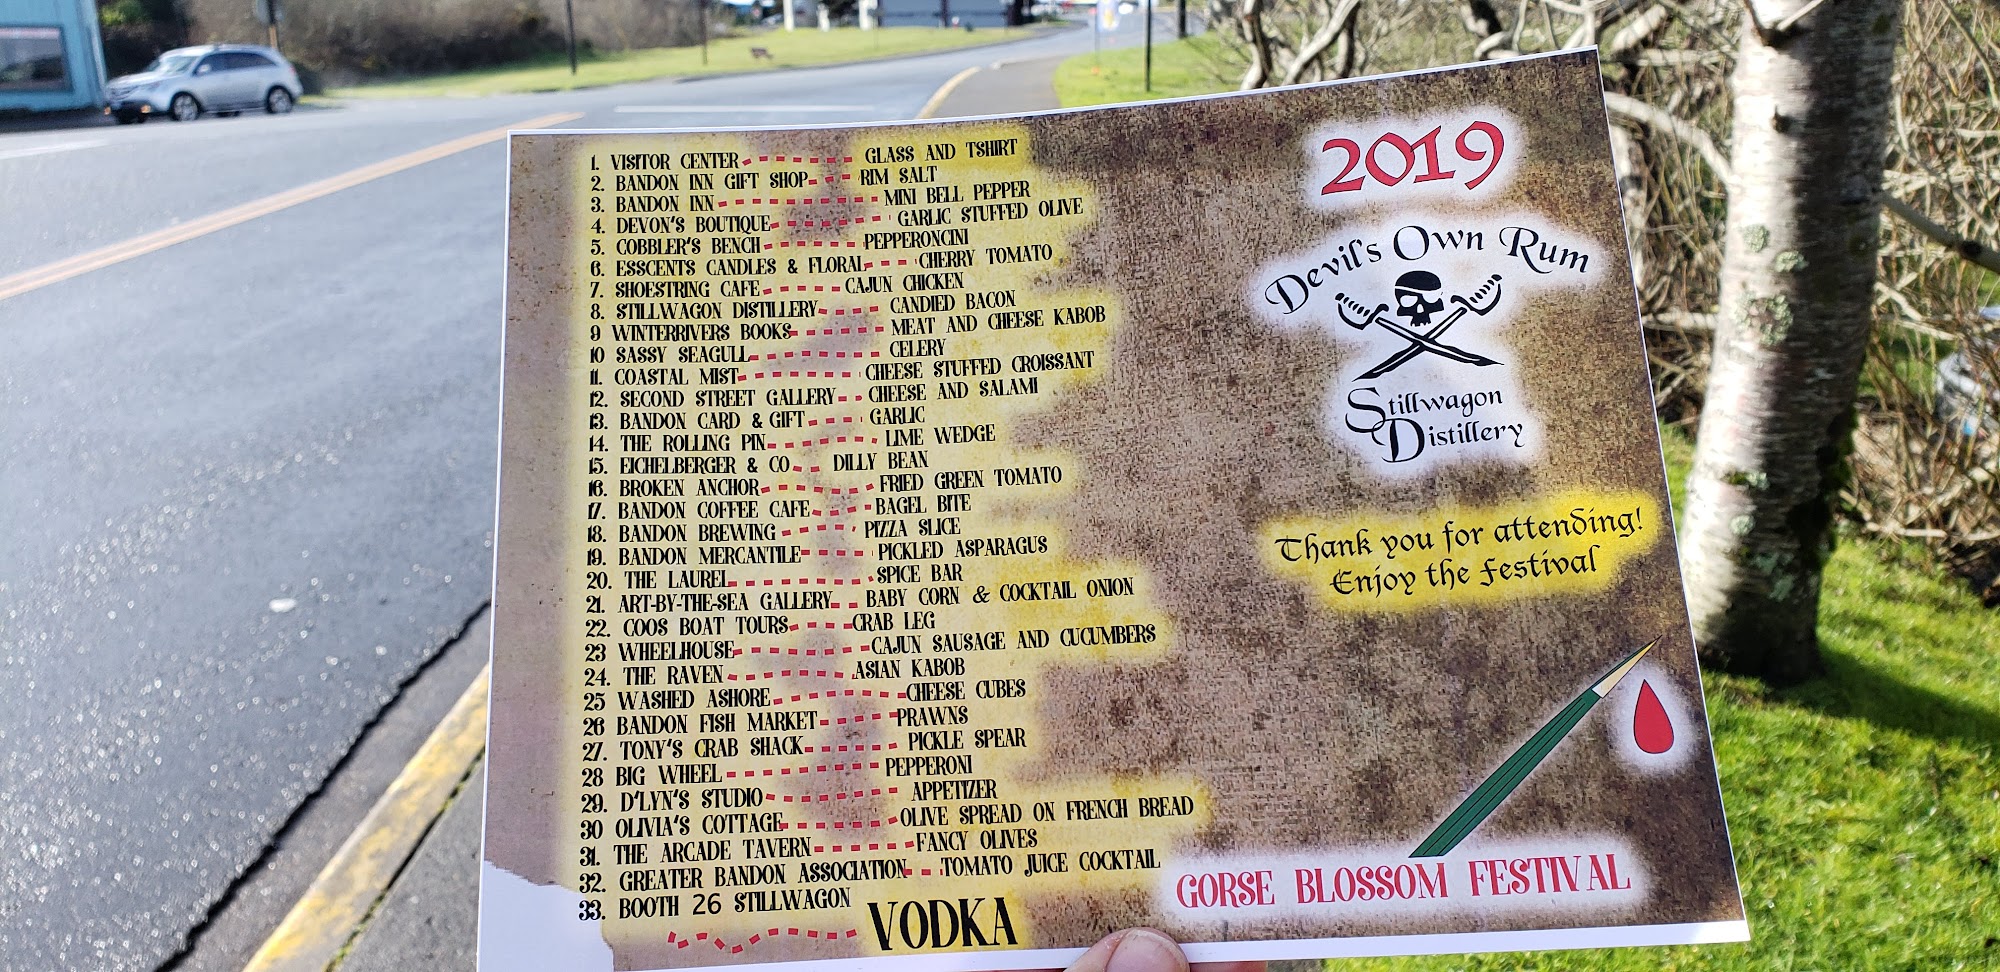 1. VISITOR CENTER GLASS AND TSHIRT
2. BANDON INN GIFT SHOP RIM SALT
3. BANDON INN MINI BELL PEPPER
4. DEVON'S BOUTIQUE GARLIC STUFFED OLIVE
5. COBBLER'S BENCH PEPPERONCINI
6. ESSCENTS CANDLES & FLORAL CHERRY TOMATO
7. SHOESTRING CAFE CAJUN CHICKEN
8. STILLWAGON DISTILLERY CANDIED BACON
9 WINTERRIVERS BOOKS MEAT AND CHEESE KABOB
10 SASSY SEAGULL CELERY
11. COASTAL MIST CHEESE STUFFED CROISSANT
12. SECOND STREET GALLERY CHEESE AND SALAMI
13. BANDON CARD & GIFT GARLIC
14. THE ROLLING PIN LIME WEDGE
15. EICHELBERGER & CO DILLY BEAN
16. BROKEN ANCHOR FRIED GREEN TOMATO
17. BANDON COFFEE CAFE BAGEL BITE
18. BANDON BREWING PIZZA SLICE
19. BANDON MERCANTILE PICKLED ASPARAGUS
20. THE LAUREL SPICE BAR
21. ART-BY-THE-SEA GALLERY BABY CORN & COCKTAIL ONION
22. COOS BOAT TOURS CRAB LEG
23 WHEELHOUSE CAJUN SAUSAGE AND CUCUMBERS
24. THE RAVEN ASIAN KABOB
25 WASHED ASHORE CHEESE CUBES
26 BANDON FISH MARKET PRAWNS
27. TONY'S CRAB SHACK PICKLE SPEAR
28 BIG WHEEL PEPPERONI
29. D'LYN'S STUDIO APPETIZER
30 OLIVIA'S COTTAGE OLIVE SPREAD ON FRENCH BREAD
31. THE ARCADE TAVERN FANCY OLIVES
32. GREATER BANDON ASSOCIATION TOMATO JUICE COCKTAIL
33. BOOTH 26 STILLWAGON
VODKA
2019
Devil's Own Rum
Stillwagon
Distillery
Thank you for attending!
Enjoy the Festival
GORSE BLOSSOM FESTIVAL